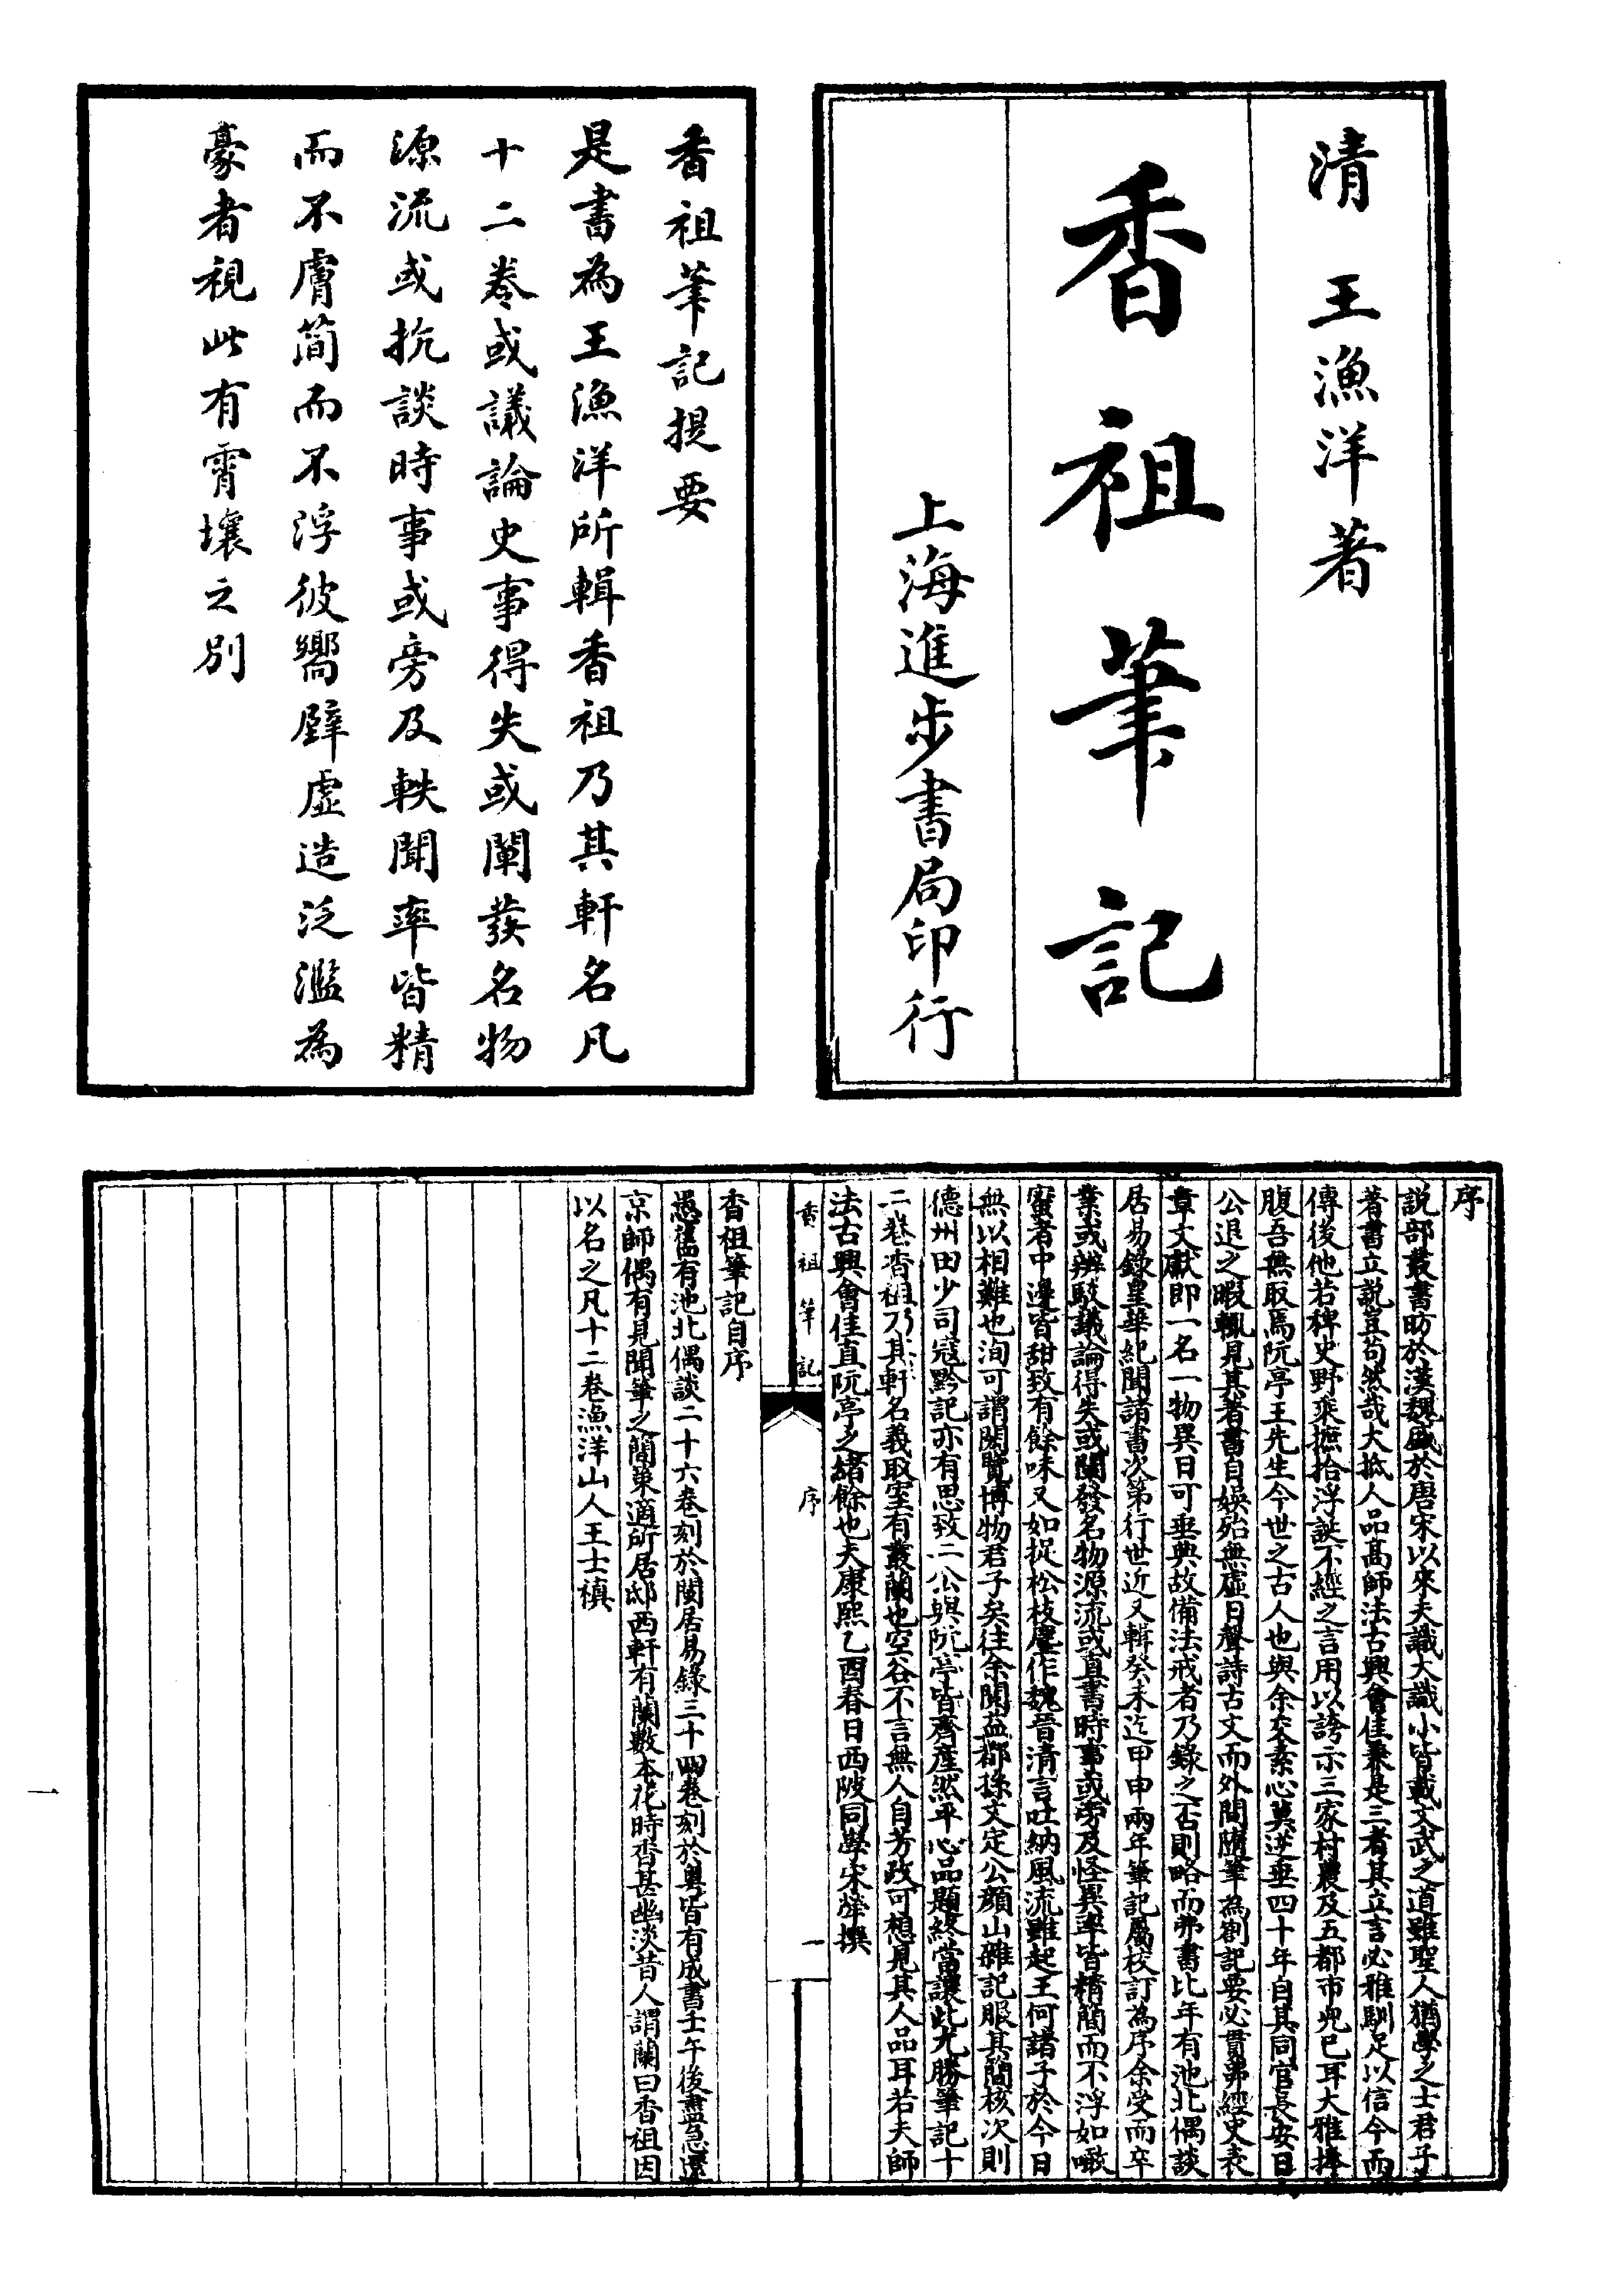 清 王漁洋著
香祖筆記
上海進步書局印行
香祖筆記提要
是書為王漁洋所輯香祖乃其軒名凡
十二卷或議論史事得失或闡發名物
源流或抗談時事或旁及軼聞率皆精
而不膚簡而不浮彼嚮壁虛造泛濫為
豪者視此有霄壤之別
序
說部叢書昉於漢魏盛於唐宋以來夫識大識小皆載文武之道雖聖人猶學之士君子
著書立說豈苟然哉大抵人品高師法古興會佳兼是三者其立言必雅馴足以信今而
傳後他若稗史野乘摭拾浮誕不經之言用以誇示三家村農及五都市兒已耳大雅捧
腹吾無取焉阮亭王先生今世之古人也與余交素心莫逆垂四十年自其同官長安日
公退之暇輒見其著書自娛殆無虛日聲詩古文而外間隨筆為劄記要必貫弗經史表
章文獻即一名一物異日可垂典故備法戒者乃錄之否則略而弗書比年有池北偶談
居易錄皇華紀聞諸書次第行世近又輯癸未迄甲申兩年筆記屬校訂為序余受而卒
業或辨駁議論得失或闡發名物源流或直書時事或旁及怪異率皆精簡而不浮如噉
蜜者中邊皆甜致有餘味又如捉松枝麈作魏晉清言吐納風流雖起王何諸子於今日
無以相難也洵可謂閎覽博物君子矣往余閱益都孫文定公顏山雜記服其簡核次則
德州田少司寇黔記亦有思致二公與阮亭皆齊產然平心品題終當讓此尤勝筆記十
二卷香祖乃其軒名義取室有叢蘭也空谷不言無人自芳故可想見其人品耳若夫師
法古興會佳直阮亭之緒餘也夫康熙乙酉春日西陂同學宋犖撰
香祖筆記
序
一
香祖筆記自序
愚舊有池北偶談二十六卷刻於閩居易錄三十四卷刻於粵皆有成書壬午後盡急還
京師偶有見聞筆之簡策適所居邸西軒有蘭數本花時香甚幽淡昔人謂蘭曰香祖因
以名之凡十二卷漁洋山人王士禛
一